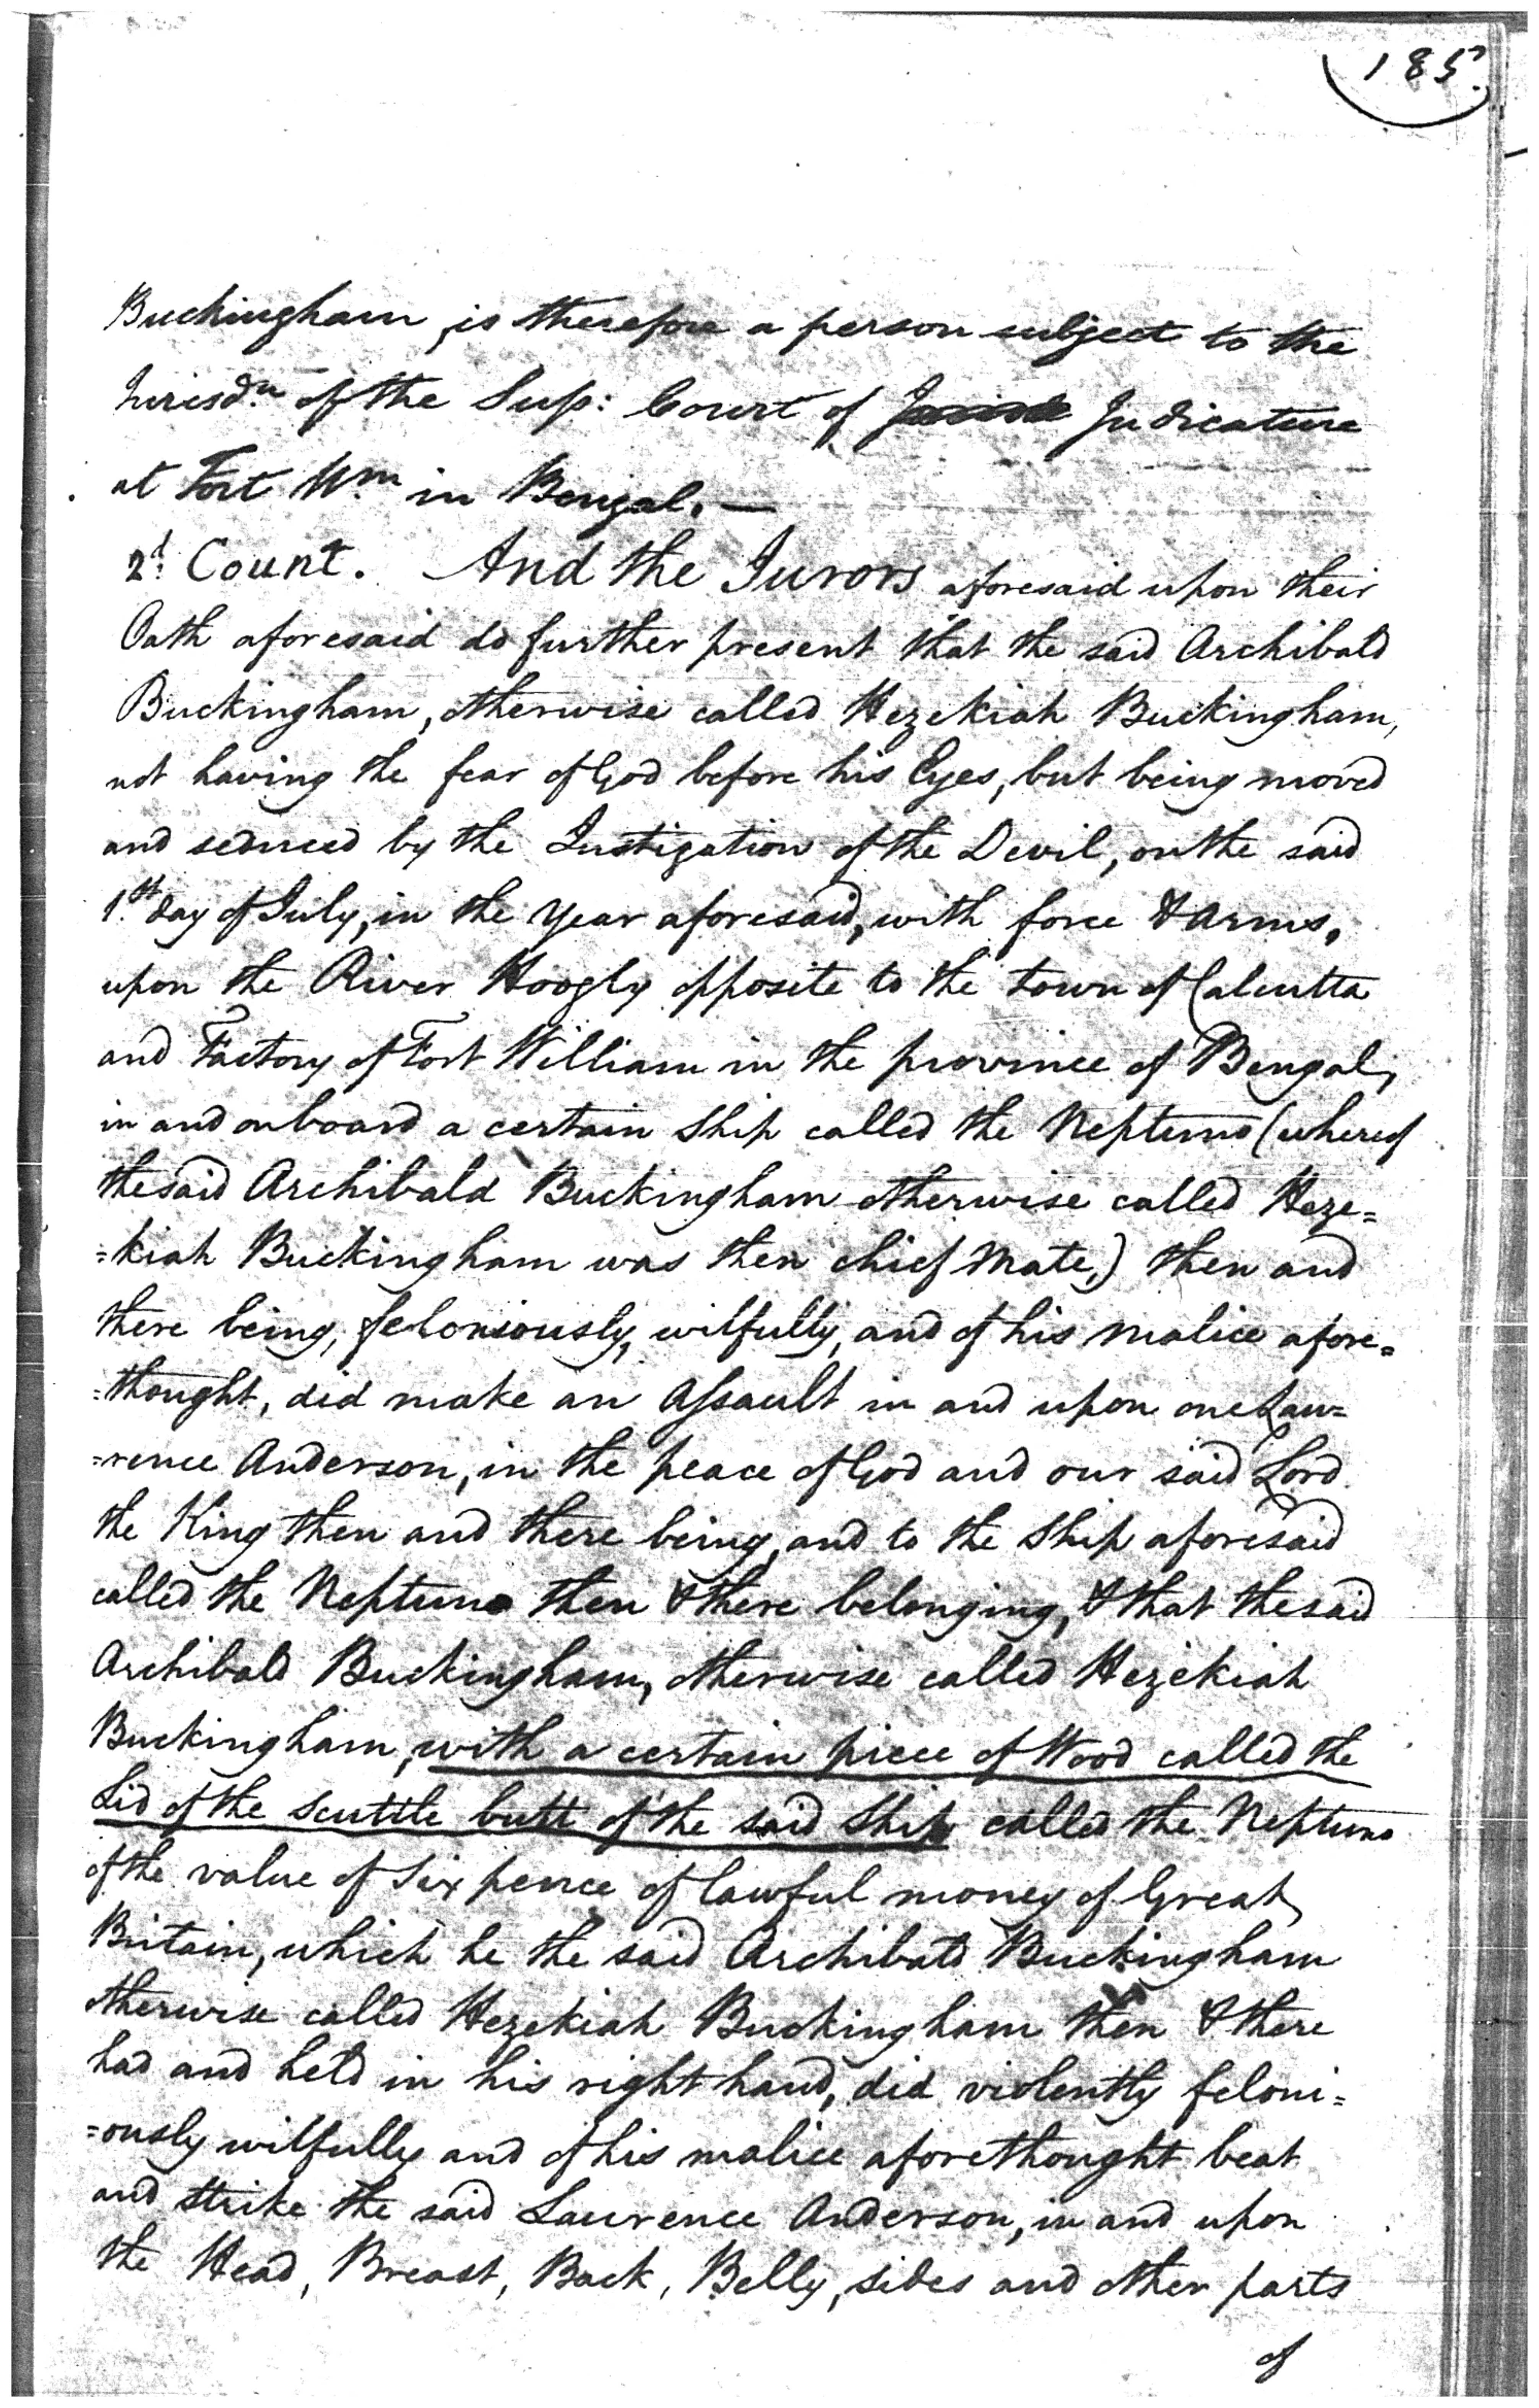 185.
Buckingham, is therefore a person subject to the
Jurisd.n of the Sup: Court of Judicature
at Fort W.m in Bengal. —
2.d Count. And the Jurors aforesaid upon their
Oath aforesaid do further present that the said Archibald
Buckingham, otherwise called Hezekiah Buckingham,
not having the fear of God before his Eyes, but being moved
and seduced by the Instigation of the Devil, on the said
1.st day of July, in the Year aforesaid, with force & Arms,
upon the River Hoogly opposite to the town of Calcutta
and Factory of Fort William in the province of Bengal,
in and onboard a certain Ship called the Neptuno (whereof
the said Archibald Buckingham otherwise called Heze=
=kiah Buckingham was then chief Mate,) then and
there being, feloniously, wilfully, and of his malice afore=
=thought, did make an Assault in and upon one Law=
=rence Anderson, in the peace of God and our said Lord
the King then and there being, and to the Ship aforesaid
called the Neptuno then & there belonging, & that the said
Archibald Buckingham, otherwise called Hezekiah
Buckingham, with a certain piece of Wood called the
Lid of the Scuttle butt of the said Ship called the Neptuno
of the value of Six pence of lawful money of Great
Britain, which he the said Archibald Buckingham
otherwise called Hezekiah Buckingham then & there
had and held in his right hand, did violently feloni=
=ously wilfully and of his malice aforethought beat
and strike the said Laurence Anderson, in and upon
the Head, Breast, Back, Belly, sides and other parts
of